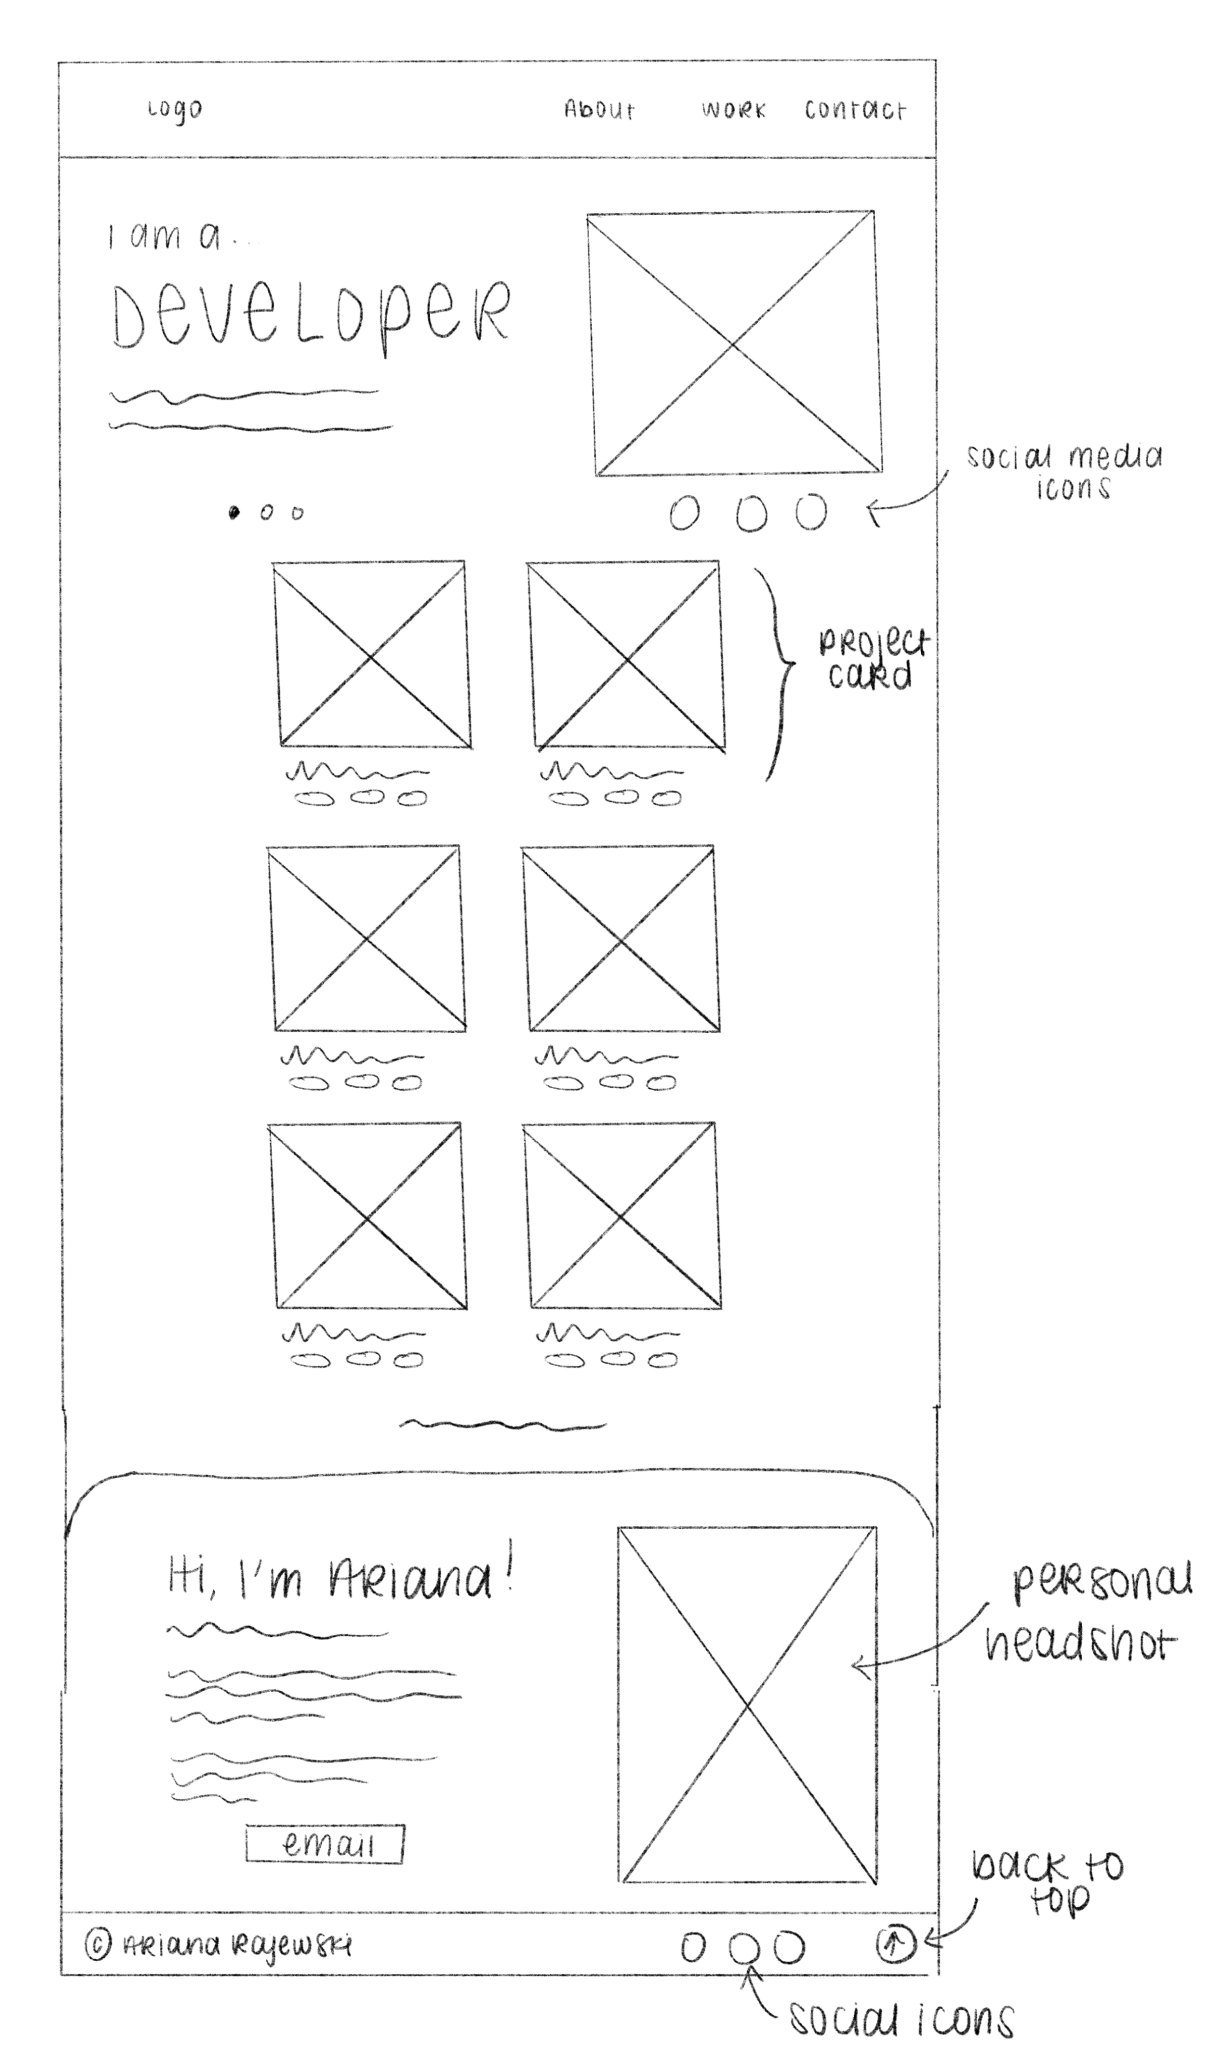 Logo
About
Work
Contact
I am a..
Developer
social media
icons
project
card
Hi, I'm Ariana!
personal
headshot
email
back to
top
© Ariana Rajewski
↑
social icons